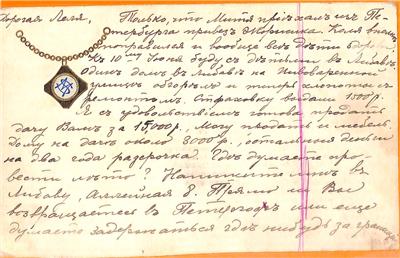 Дорогая Леля, Только, что Митя пріѣхал изъ Пе-
тербурга привез Жоржика. Коля вполнѣ
поправился и вообще всѣ дѣти
Къ 10му Іюня буду съ дѣтьми въ Либавѣ.
один дом въ Либавѣ на Пивоваренной
улицѣ обгорѣл и теперь хлопоты съ
ремонтом. Страховку выдали 1500р.
Я съ удовольствіем готова продать
дачу Вамъ за 15,000р., могу продать и мебель.
Дому на дачѣ около 8000р., остальныя деньги
на два года разсрочка. Гдѣ думаете про-
вести лѣто? Напишите мнѣ въ
Либаву, Аллейная 8. Прямо ли Вы
возвращаетесь въ Петергофъ или еще
думаете задержаться гдѣ нибудь за границей